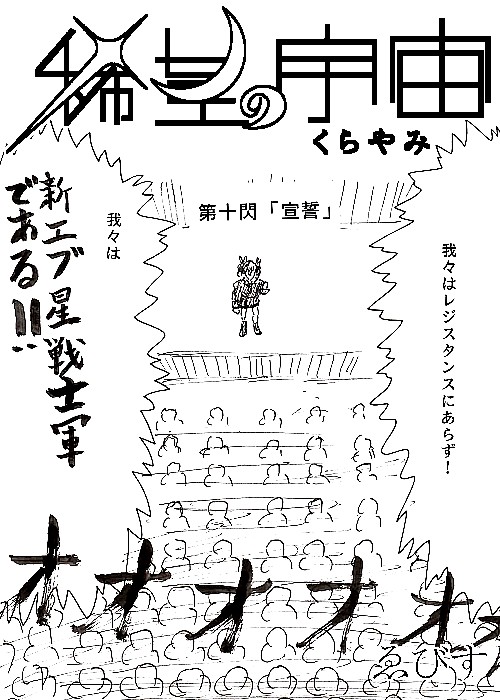 希望の宇宙
くらやみ
第十閃「宣誓」
我々はレジスタンスにあらず!
我々は
新エブ星戦士軍
である!!
オオオオオ
ゑびす